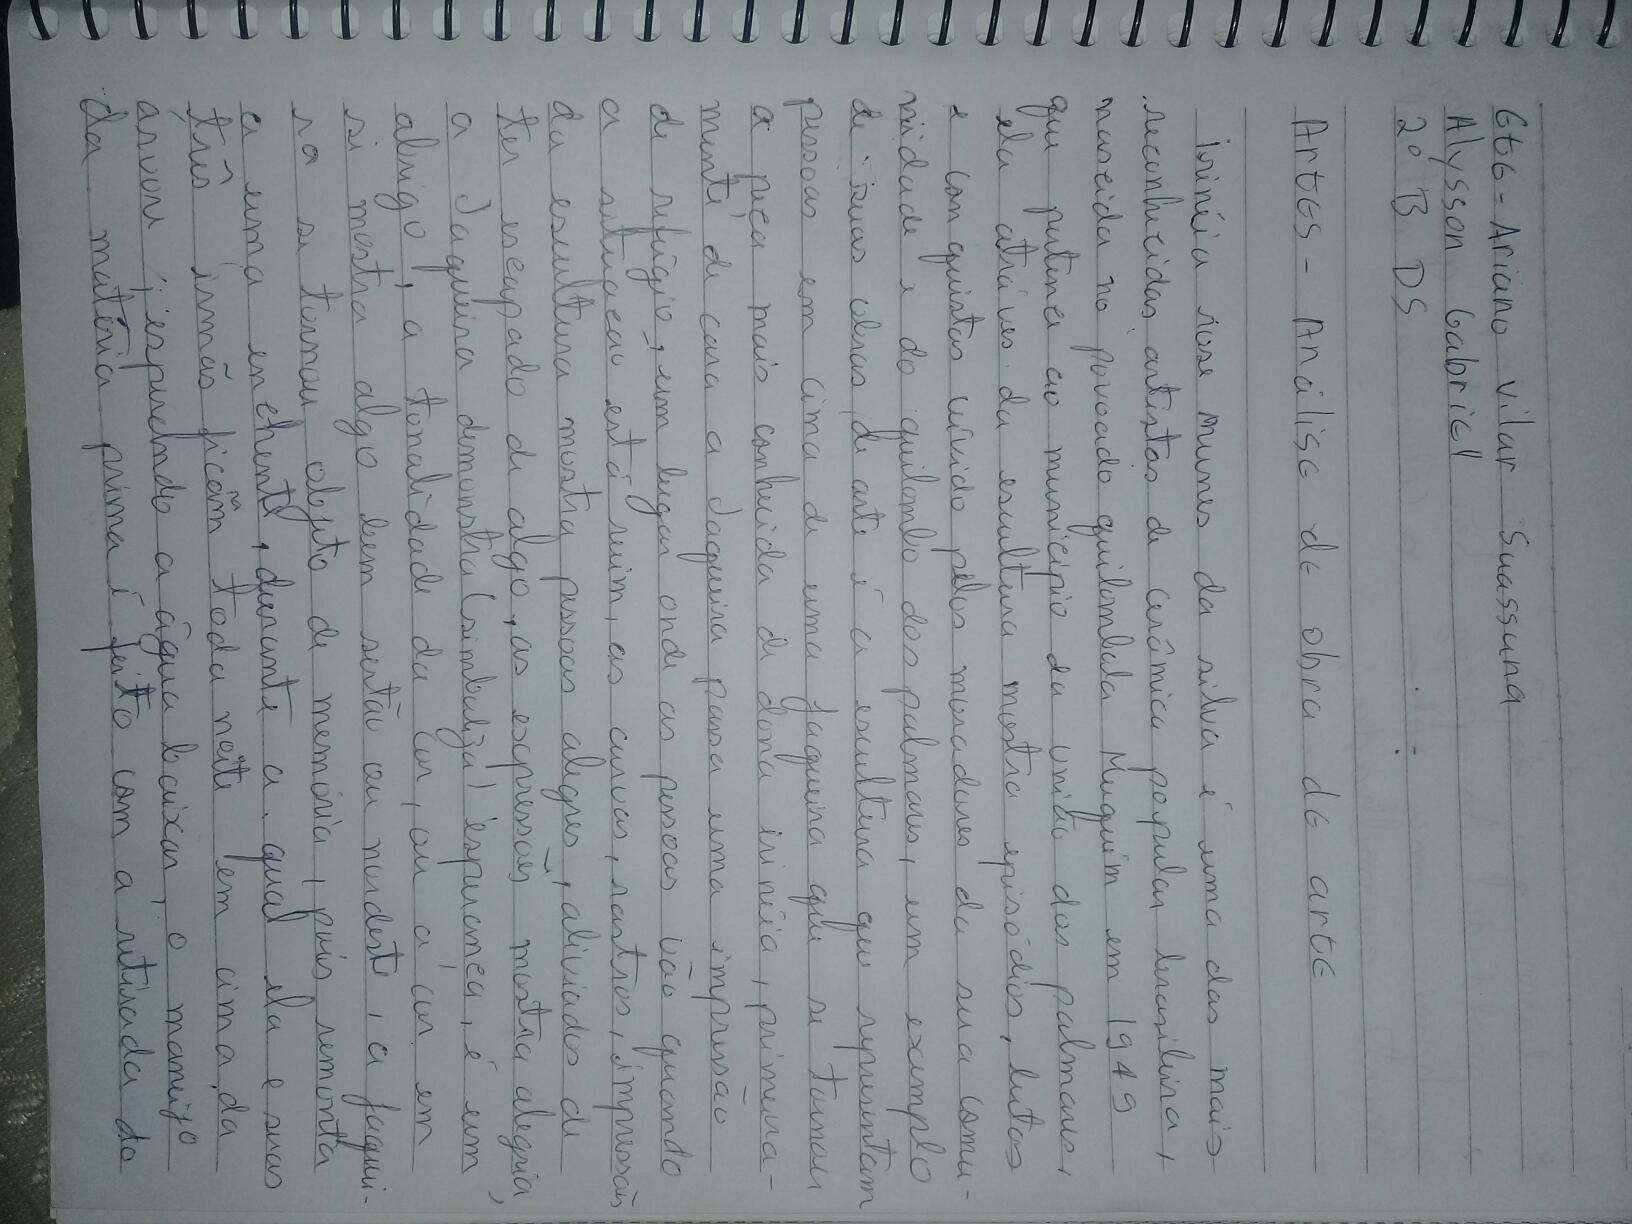 Ete - Ariano Vilar Suassuna
Alysson Gabriell
2º B DS
Artes - Análise de obra de arte
irinéia rose Nunes da silva é uma das mais
reconhecidas artistas de cerâmica popular brasileira,
nascida no povoado quilombola Muquém em 1949
que pertence ao município da união dos palmares,
ela atráves da escultura mostra episódios, lutas
e conquistas vivido pelos moradores da sua comu-
nidade e do quilombo dos palmares, um exemplo
de suas obras de arte é a escultura que representam
pessoas em cima de uma jaqueira que se tornou
a peça mais conhecida de dona irinéia, primeira-
mente de cara a Jaqueira passa uma impressão
de refúgio, um lugar onde as pessoas vão quando
a situação está ruim, as curvas, rostros, impressão
da escultura mostra pessoas alegres, aliviados de
ter escapado de algo, as expressões mostra alegria,
a Jaqueira demonstra (simboliza) esperança, é um
abrigo, a tonalidade da cor, ou a cor em
si mostra algo bem sertão ou nordeste, a jaquei-
ra se tornou objeto de memória, pois remonta
a uma enchente, durante a qual ela e suas
três irmãs ficam toda noite em cima da
árvore, esperando a água baixar, o manejo
da matéria prima é feito com a retirada do